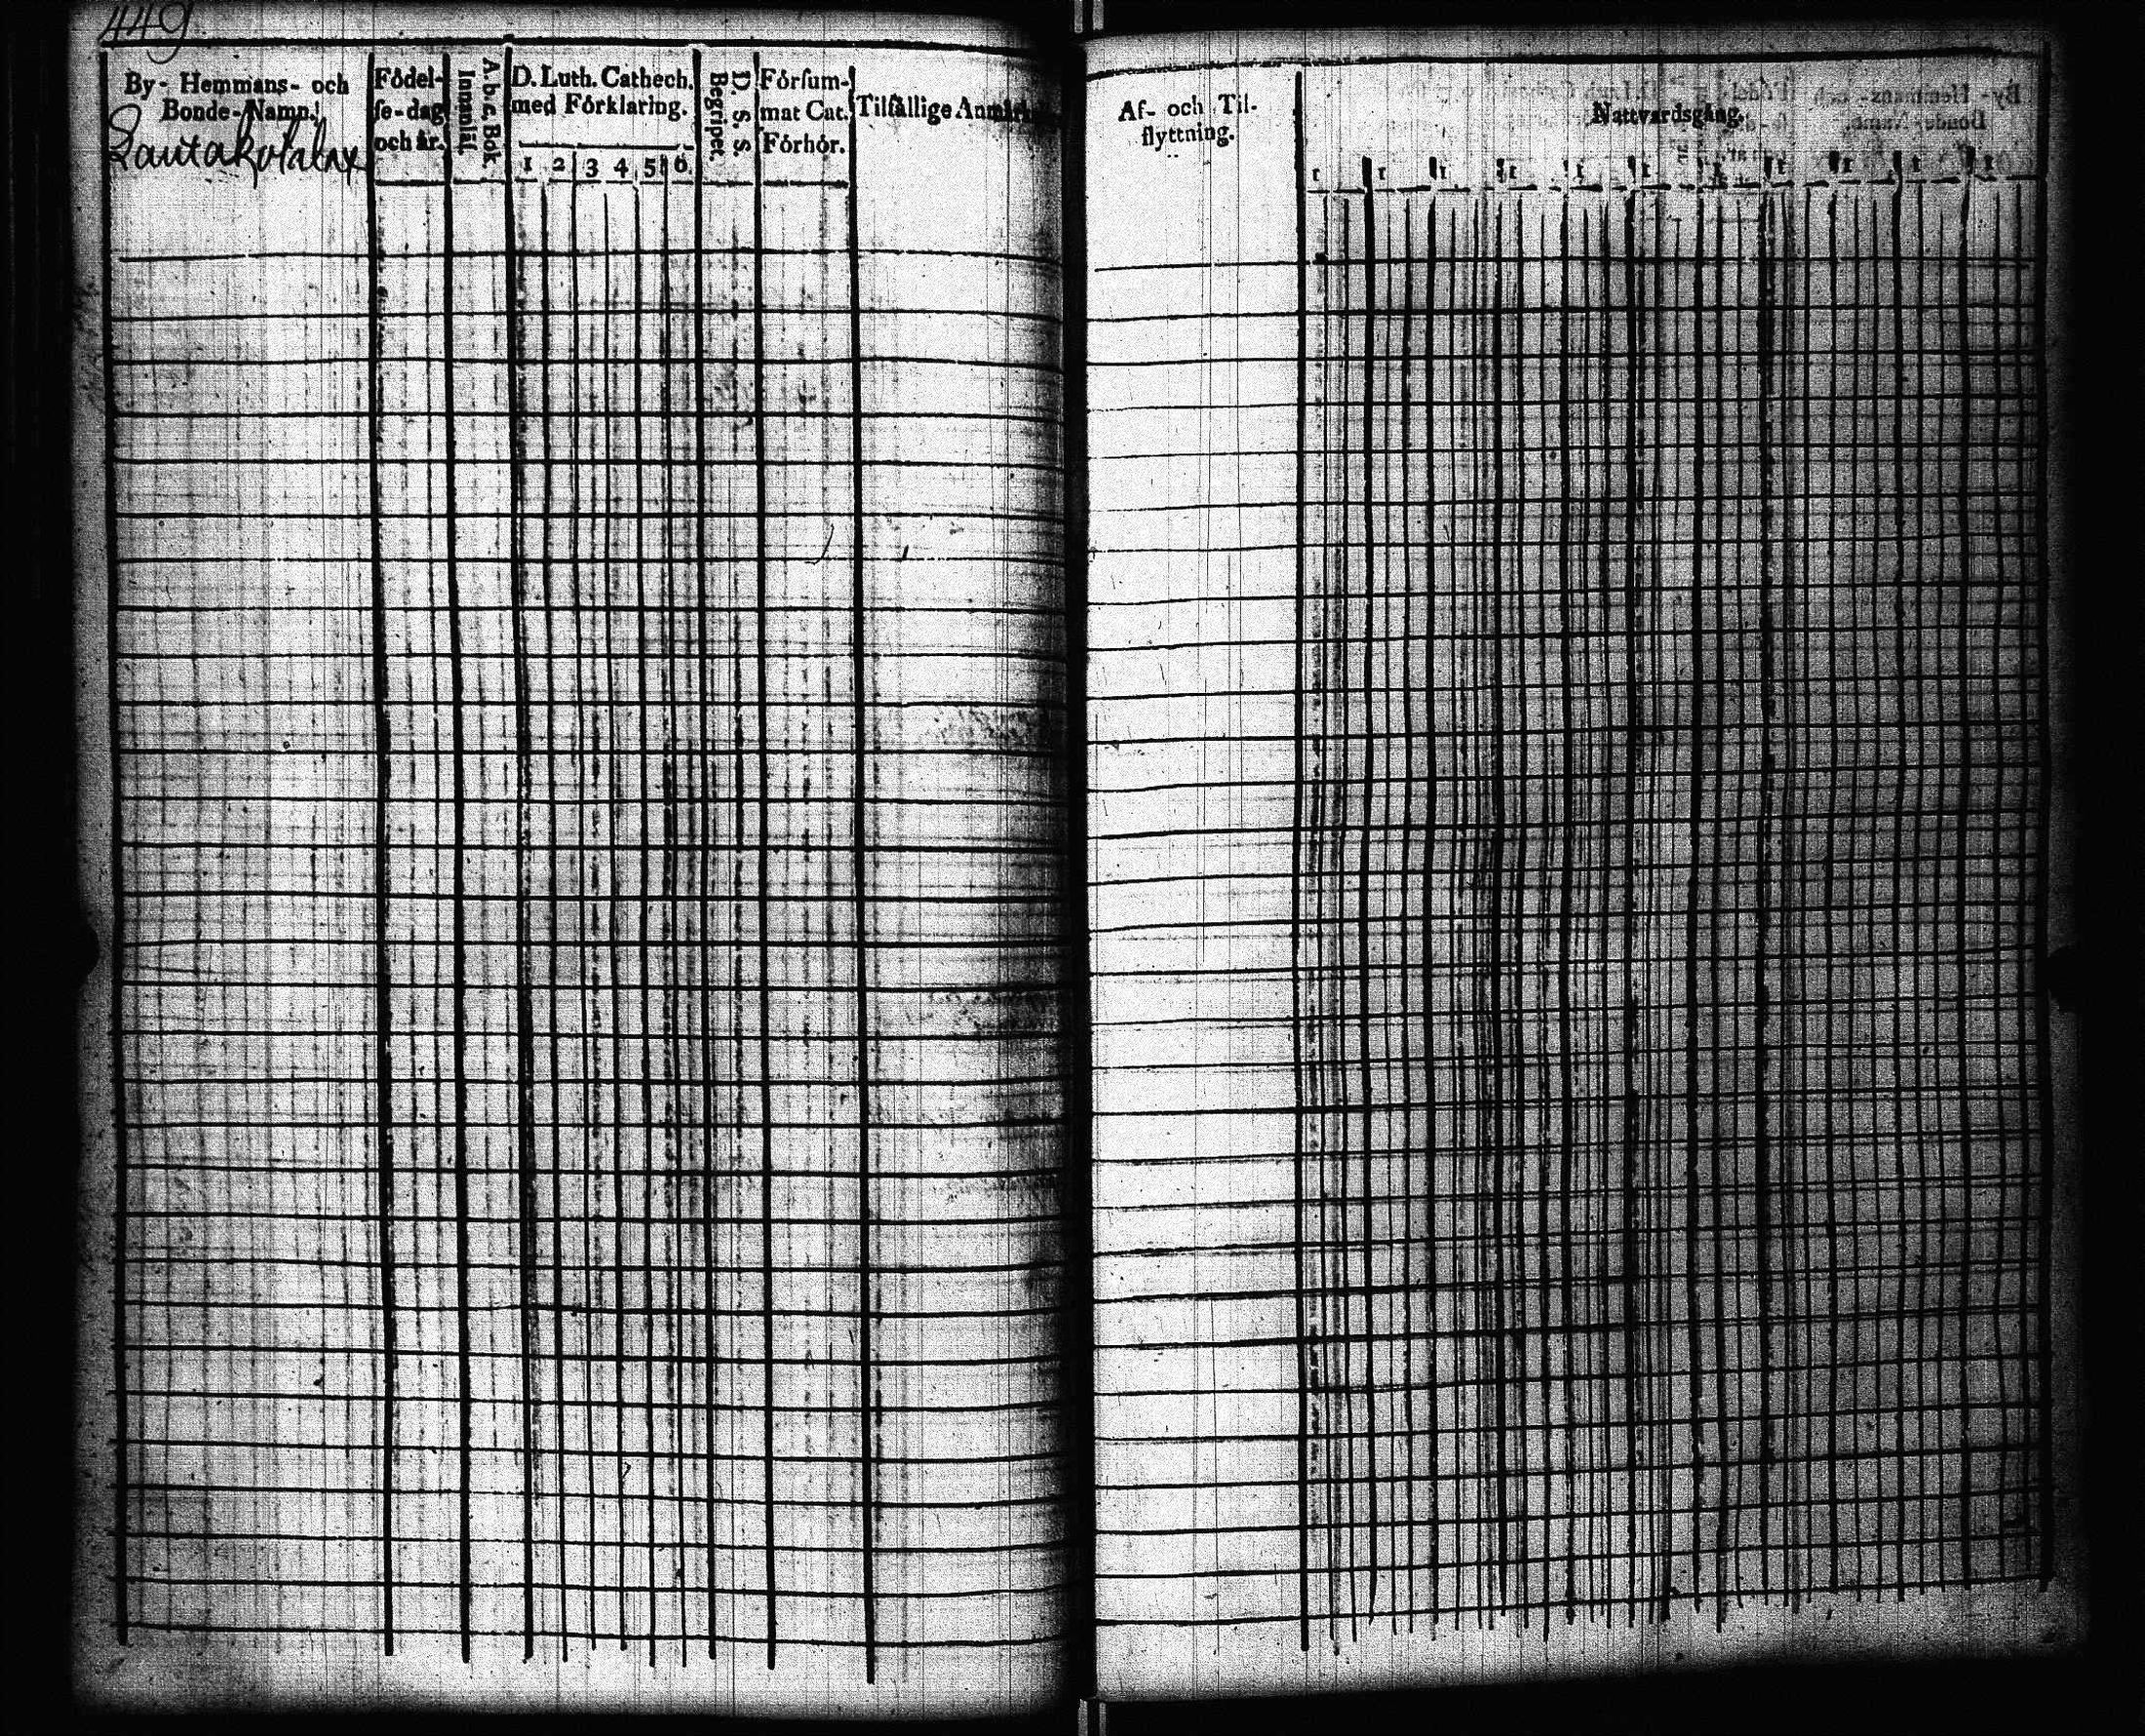 449
By- Hemmans- och
Bonde-Namn.
Födel-
se-dag
och år.
A. b. c. Bok.
Innantil.
D. Luth. Cathech.
med Förklaring.
1 2 3 4 5 6
D. S. S.
Begripet.
Försum-
mat Cat.
Förhör.
Tilfällige
Af- och Til-
flyttning.
Nattvardsgång.
1 1 1 1 1 1 1 1 1 1 1